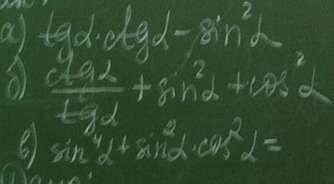 а) tgα·ctgα-sin²α
б) ctgα/tgα + sin²α + cos²α
в) sin⁴α + sin²α·cos²α =